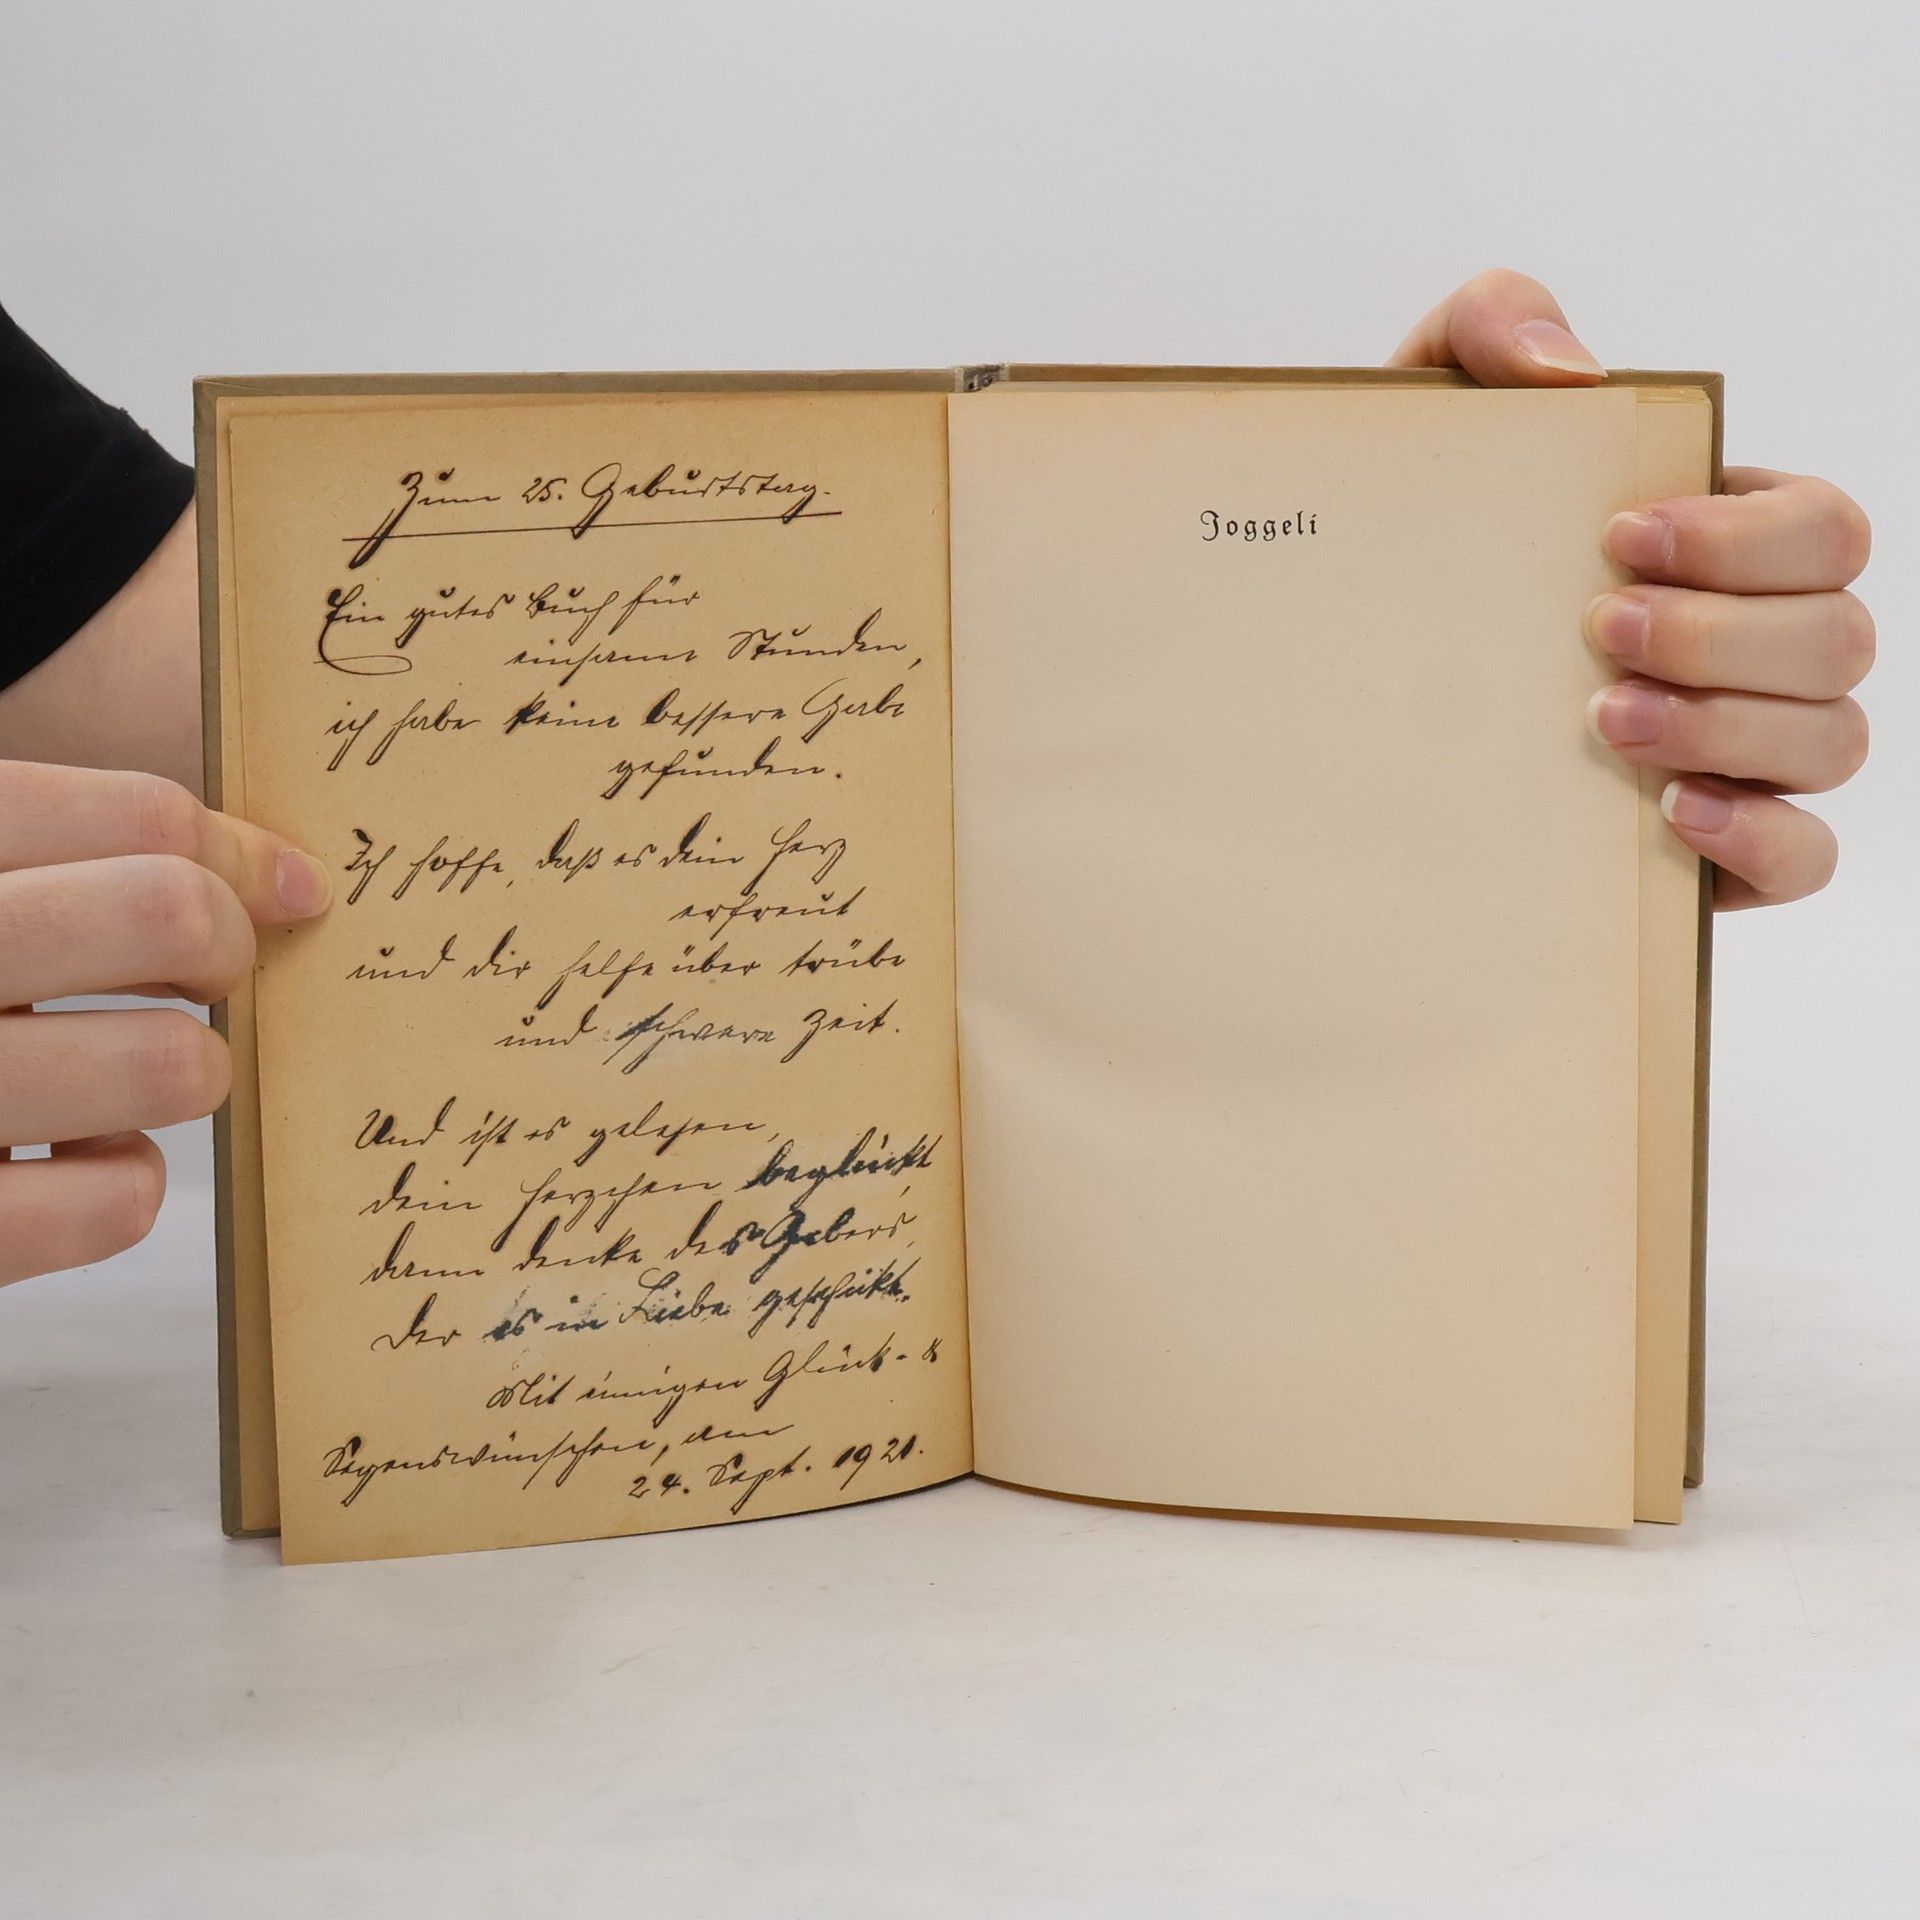 Zum 25. Geburtstag.
Ein gutes Buch für
einsame Stunden,
ich habe keine bessere Gabe
gefunden.
Ich hoffe, daß es dein Herz
erfreut
und dir helfe über trübe
und schwere Zeit.
Und ist es gelesen,
dein Herzchen beglückt,
dann denke des Gebers,
Der es in Liebe geschickt.
Mit innigen Glück- &
Segenswünschen, am
24. Sept. 1921.
Joggeli